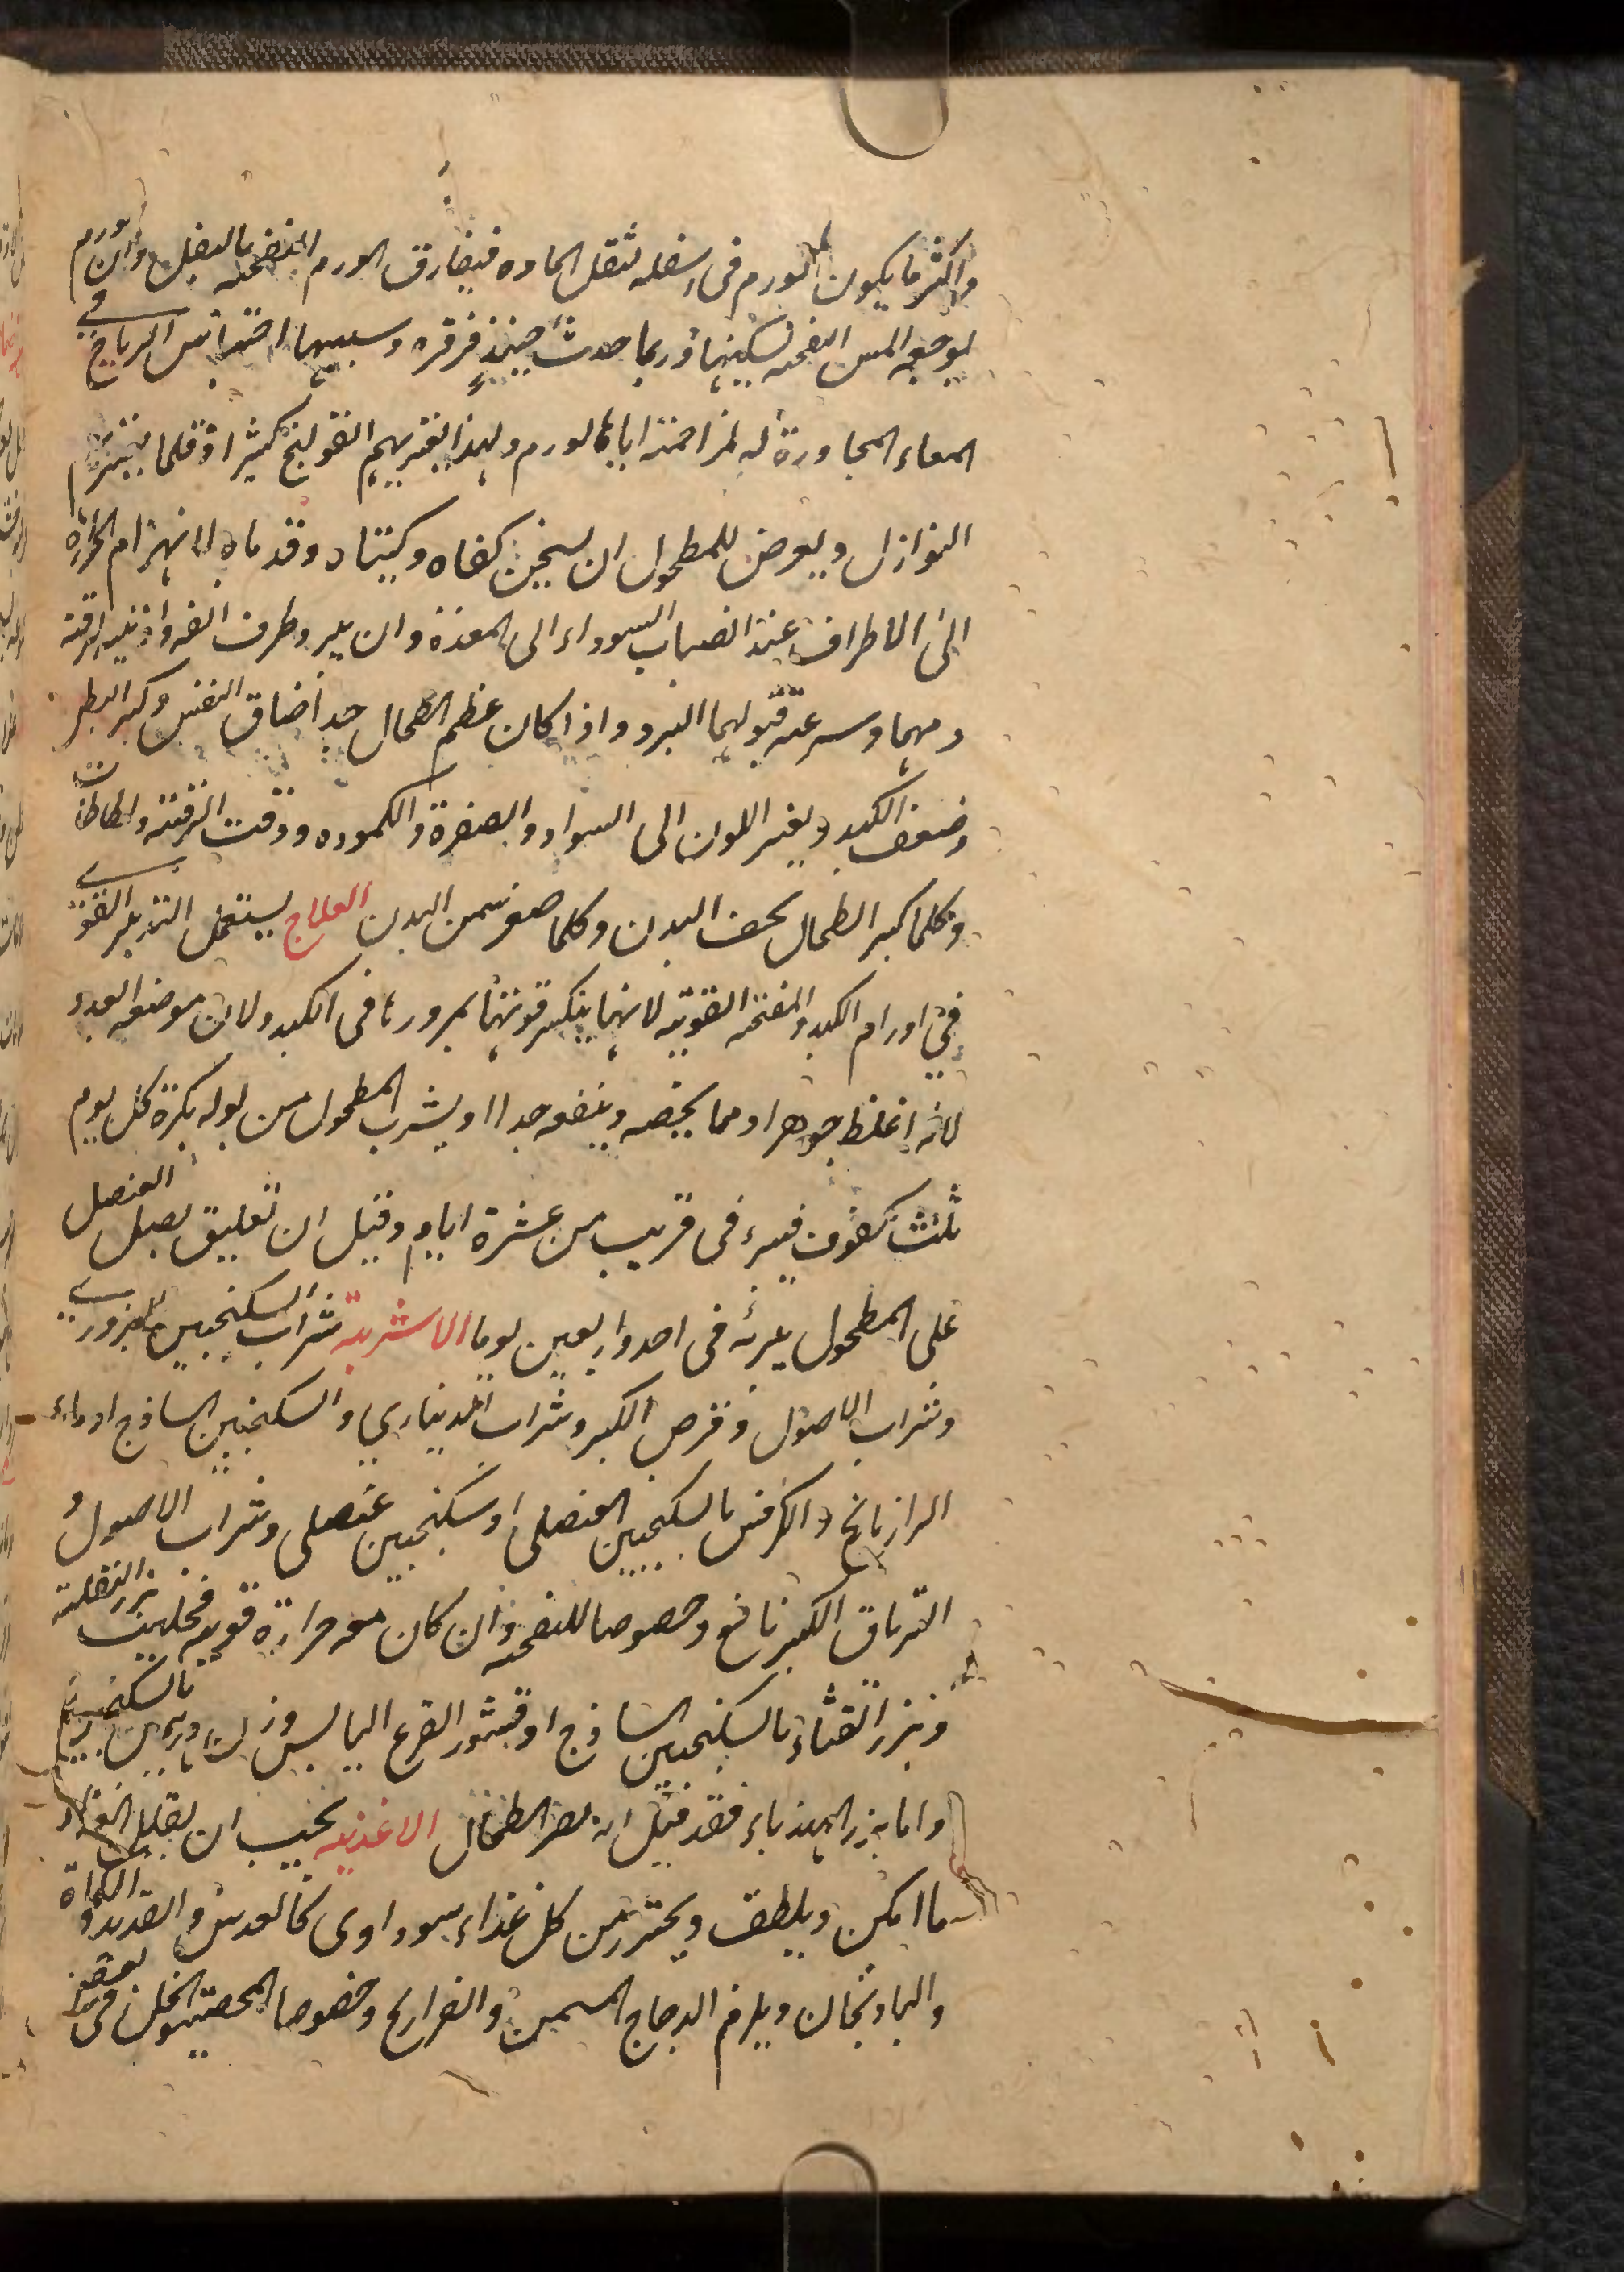 واكثر ما يكون الورم فى اسفله لثقل الماده فيفارق الورم النفخه بالثقل وان ورم
يوجعه المس النفخه تسكينها وربما حدث حينئذٍ قرقره وسببها احتباس الرياح فى
المعاء المجاورة له لمزاحمته اياها الورم ولهذا يعتريهم القولنج كثيرا وقلما يعتريهم
النوازل ويعرض للمطحول ان يسخن كفاه وركبتاه وقدماه لانهزام الحرارة
الى الاطراف عند انصباب السوداء الى المعدة وان يبرد طرف انفه واذنيه لرقة
دمهما وسرعة قبولهما البرد واذا كان عظم الطحال جداً ضاق النفس وكبر البطن
وضعف الكبد وتغير اللون الى السواد والصفرة والكمودة ودقت الرقبة
وكلما كبر الطحال نحف البدن وكلما صغر سمن البدن العلاج يستعمل التدبير القوى
فى اورام الكبد والمفتحه القوية لانها ينكسر قوتها بمرورها فى الكبد ولان موضعه ابعد
لانه اغلظ جوهرا ومما يخصه وينفعه جدا ان يشرب المطحول من بوله بكرة كل يوم
ثلث كفوف فيبرء فى قريب من عشرة ايام وقيل ان تعليق بصل العنصل
على المطحول يبرئه فى احد واربعين يوما الاشربة شراب السكنجبين البزورى
وشراب الاصول وقرص الكبر وشراب الدينارى والسكنجبين الساذج او ماء
الرازيانج والكرفس بالسكنجبين العنصلى او سكنجبين عنصلى وشراب الاصول و
الترياق الكبير نافع وخصوصا للنفخه وان كان معه حرارة قوية فحليب بزر البقلة
وبزر القثاء بالسكنجبين الساذج او قشور القرع اليابس وزن درهمين بالسكنجبين
واما بزر الهندباء فقد قيل انه يضر الطحال الاغذية يجب ان يقلل الغذاء
ما امكن ويلطف ويحترز من كل غذاء سوداوى كالعدس والقديد والكماة
والبادنجان ويلزم الدجاج المسمن والفراريج وخصوصا